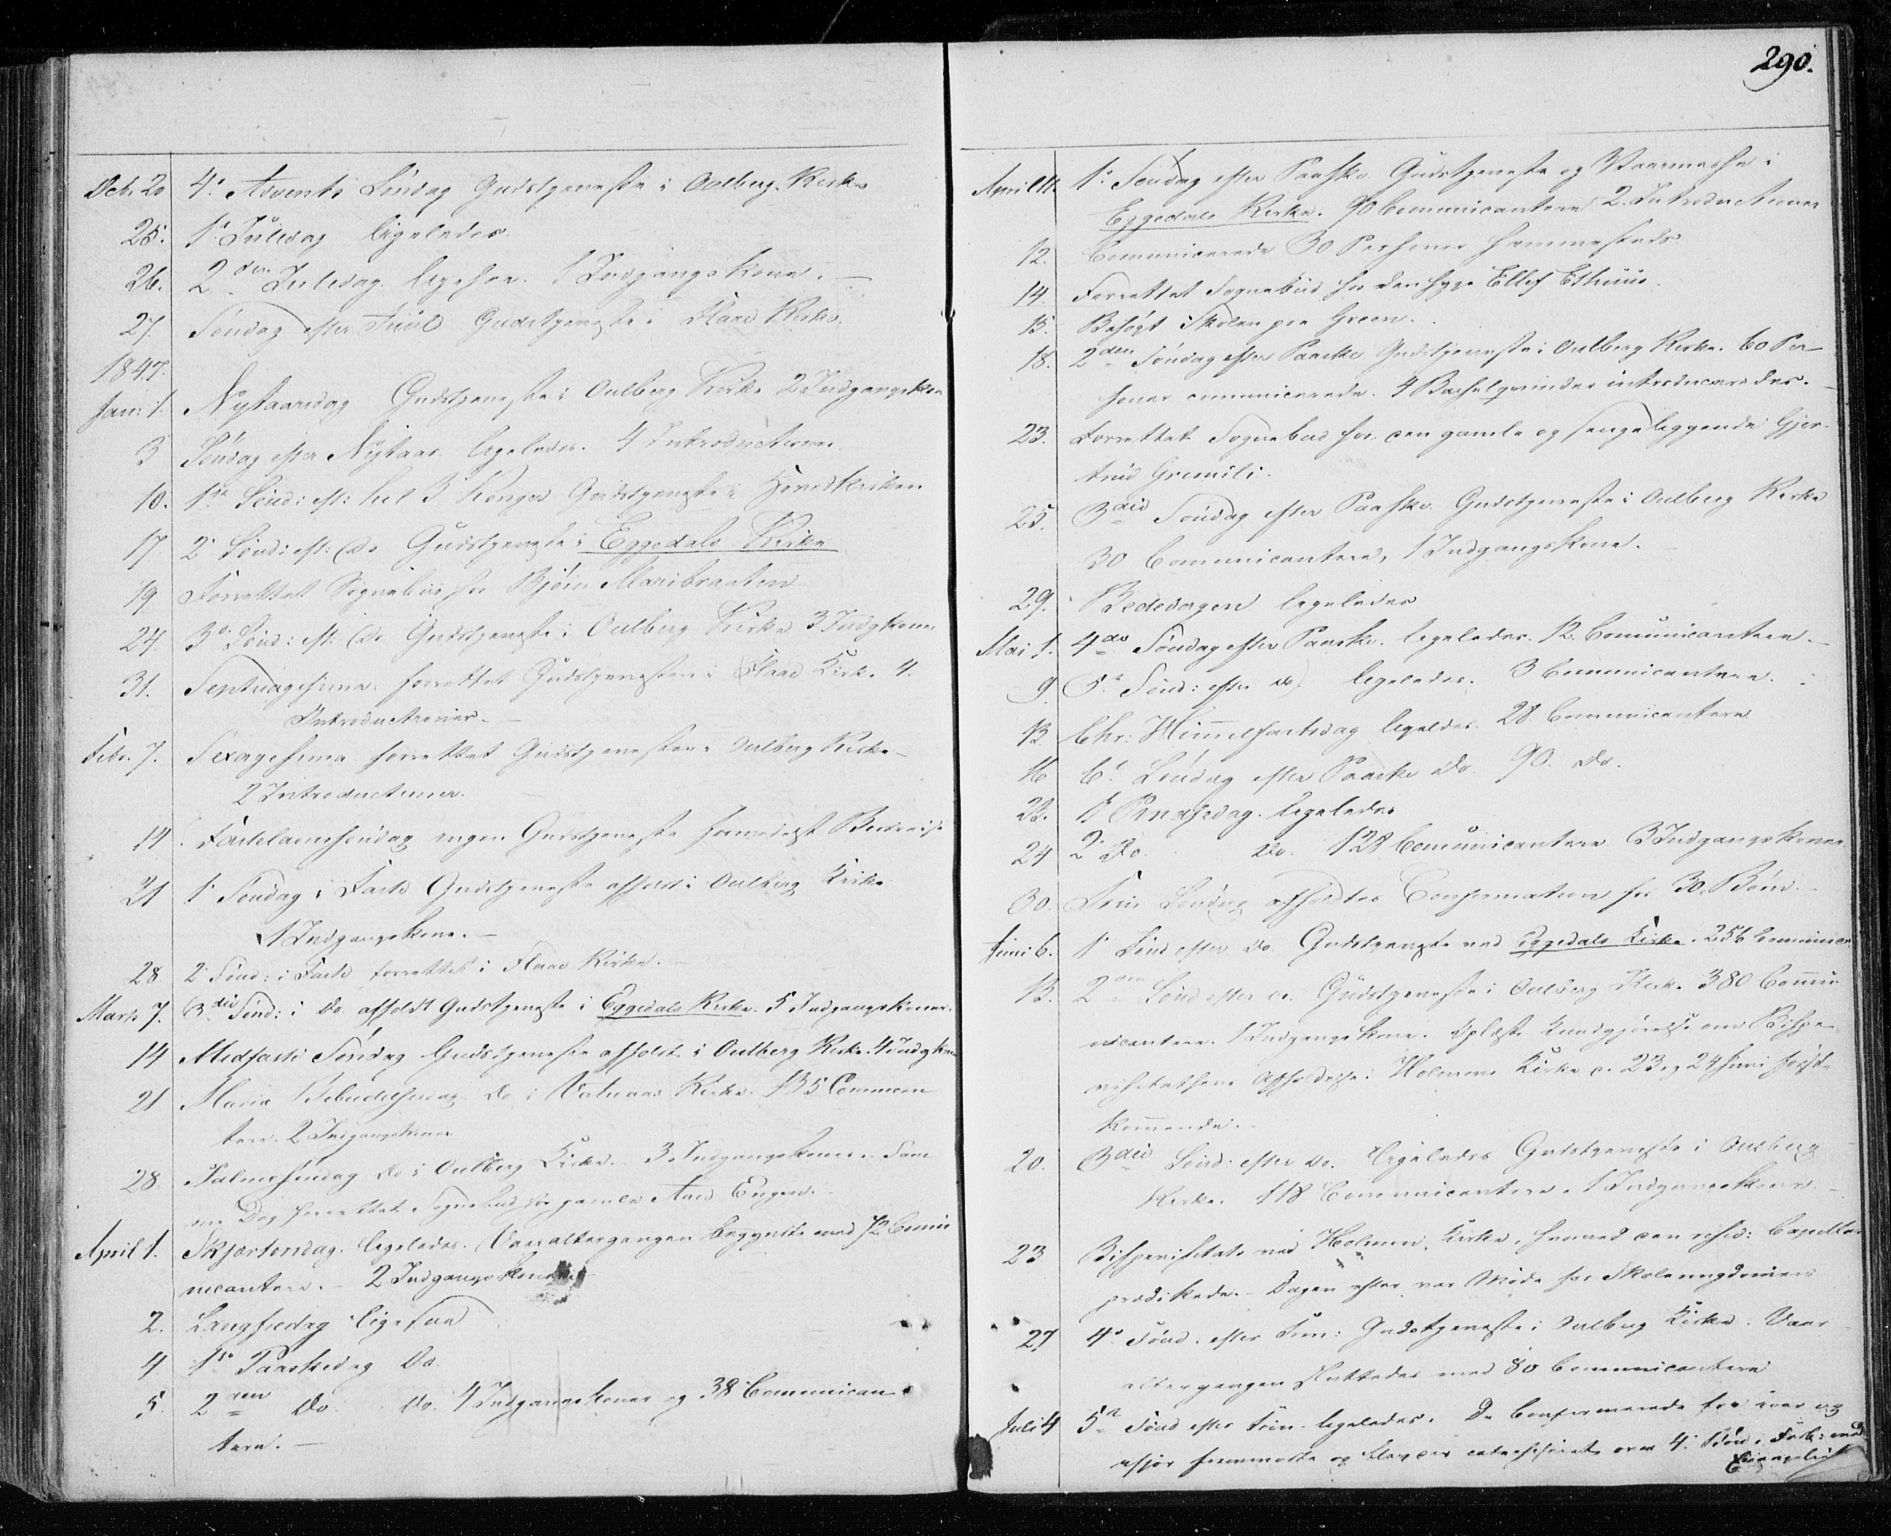 Dcb. 20 4. Advents Søndag Gudstjeneste i Oulberg Kirke
25. 1. Juledag ligeledes.
26. 2den Juledag ligesaa. 1 Indgangskone.
27. Søndag efter Juul Gudstjeneste i Flaae Kirke.
1847.
Jan: 1. Nytaarsdag Gudstjeneste i Oulberg Kirke 2 Indgangskon
3 Søndag efter Nytaar ligeledes. 4 Introductioner
10. 1ste Sønd: eft: hel 3 Konger Gudstjeneste i Hovedkirken
17 2. Sønd: eft: do Gudstjeneste i Eggedals Kirke
19 Forrettet Sognebud hos Bjørn Maribraaten
24. 3die Sønd: eft: do Gudstjeneste i Oulberg Kirke 3 Indgkoner
31. Septuagesima forrettet Gudstjenesten i Flaae Kirke 4
Introductioner.
Febr. 7. Sexagesima forrettet Gudstjenesten i Oulberg Kirke
2 Introductioner.
14 Fastelavnssøndag ingen Gudstjeneste formedelst
21 1 Søndag i Faste Gudstjeneste afholdt i Oulberg Kirke
1 Indgangskone.
28 2 Sønd: i Faste forrettet i Flaae Kirke.
Marts 7. 3die Sønd: i do afholdt Gudstjeneste i Eggedals Kirke. 5 Indgangskoner.
14 Midfaste Søndag Gudstjeneste afholdt i Oulberg Kirke. 4 Indgkon
21 Maria Bebudelsesdag do i Kirke. 135 Commun
tere. 2 Indgangskoner
28. Palmesøndag do i Oulberg Kirke. 3 Indgangskoner. Sam
me Dag forrettet Sognebud for gamle Engen.
April 1. Skjærtorsdag. ligeledes. Vaaraltergangen begyndte med 72 Comu
nicantere. 2 Indgangskoner
2. Langfredag ligesaa
4 1ste Paaskedag Do.
5. 2den Do. do. 4 Indgangskoner og 38 Communican
tere.
290.
April 11. 1. Søndag efter Paaske Gudstjeneste og Vaarmesse i
Eggedals Kirke. 90 Communicantere 2 Introductioner
12. Communicerede 30 Personer sammesteds
14. Forrettet Sognebud for den syge Ellef
15. Besøgt Skolen paa Green.
18. 2den Søndag efter Paaske Gudstjeneste i Oulberg Kirke. 60 Per
soner communicerede. 4 Barselqvinder introduceredes.
23. Forrettet Sognebud for den gamle og sengeliggende Gjer-
trud Gremili.
25. 3die Søndag efter Paaske Gudstjeneste i Oulberg Kirke
30 Communicantere, 1 Indgangskone.
29. Bededagen ligeledes
Mai 1. 4de Søndag efter Paaske. ligeledes. 12 Comunicantere.
9 5te Sønd: efter do. ligeledes. 3 Communicantere.
13 Chr: Himmelfartsdag ligeledes. 28 Communicantere
16 6te Søndag efter Paaske do. 90. do.
23. 1ste Pindsedag. ligeledes
24 2. Do. do. 128 Comunicantere 3 Indgangskoner
30. Trin Søndag afholdtes Confirmation for 30 Børn.
Juni 6. 1 Sønd efter do. Gudstjeneste ved Eggedals Kirke. 256 Communican
13. 2den Sønd efter do. Gudstjeneste i Oulberg Kirke 380 Commu
nicantere. 1 Indgangskone. Oplæst Kundgjørelse om Bispe
visitatsens Afholdelse i Holmens Kirke d. 23 og 24 Juni først-
kommende.
20. 3die Sønd: efter do. ligeledes Gudstjeneste i Oulberg
Kirke. 118 Communicantere. 1 Indgangskone.
23 Bispevisitats ved Holmen Kirke, hvorved den resid: Capellan
prædikede. Dagen efter var Møde for Skoleungdommen
27 4. Sønd. efter Trin: Gudstjeneste i Oulberg Kirke. Vaar
altergangen sluttedes med 80 Communicantere
Juli 4 5te Sønd efter Trin. ligeledes. De Confirmerede fra iaar og
ifjor fremmødte og bleve catechiserede over 4. Bøn i Forb: med
Evangeliet